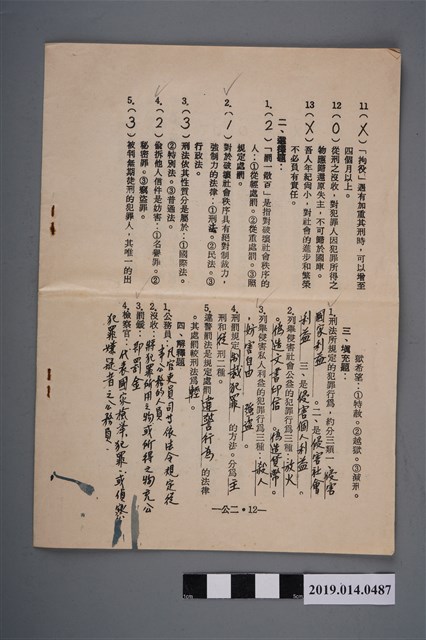 11（X）「拘役」遇有加重其刑時，可以增至
四個月以上。
12（O）從刑之沒收，對犯罪人因犯罪所得之
物應歸還原失主，不可歸於國庫。
13（X）吾人年紀尚小，對社會的進步和繁榮
不必負有責任。
二、選擇題：
1.（2）「罰一儆百」是指對破壞社會秩序的
人：①從輕處罰。②從重處罰。③照
規定處罰。
2.（1）對於破壞社會秩序具有絕對制裁力，
強制力的法律：①刑法。②民法。③
行政法。
3.（3）刑法依其性質分是屬於：①國際法。
②特別法。③普通法。
4.（2）偷拆他人信件是妨害：①名譽罪。②
秘密罪。③竊盜罪。
5.（3）被判無期徒刑的犯罪人，其唯一的出
獄希望：①特赦。②越獄。③減刑。
三、填充題：
1.刑法所規定的犯罪行為，約分三類一侵害
國家利益。二是侵害社會
利益。三是侵害個人利益。
2.列舉侵害社會公益的犯罪行為三種：放火
偽造文書印信。偽造貨幣。
3.列舉侵害私人利益的犯罪行為三種：殺人
妨害自由。強盜。
4.刑罰規定制裁犯罪的方法。分為主
刑和從刑二種。
5.違警罰法是規定處罰違警行為的法律
其處罰較刑法為輕。
四、解釋題
1.公務員：凡官吏員司等依法令規定從
事公務的人員
2.沒收：將犯罪所用之物或所得之物充公
3.罰鍰：即罰金
4.檢察官：代表國家檢舉犯罪，或偵察
犯罪嫌疑者之公務員。
—公二·12—
2019.014.0487